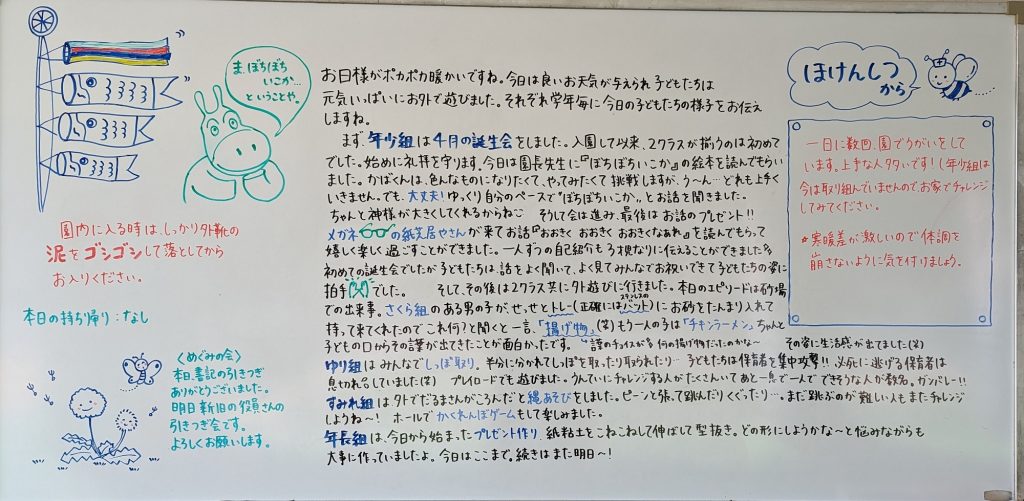 ま、ぼちぼち
いこか…
ということや。
園内に入る時は、しっかり外靴の
泥をゴシゴシして落としてから
お入りください。
本日の持ち帰り:なし
〈めぐみの会〉
本日、書記の引きつぎ
ありがとうございました。
明日新旧の役員さんの
引きつぎ会です。
よろしくお願いします。
お日様がポカポカ暖かいですね。今日は良いお天気が与えられ子どもたちは
元気いっぱいにお外で遊びました。それぞれ学年毎に今日の子どもたちの様子をお伝え
しますね。
まず、年少組は4月の誕生会をしました。入園して以来、2クラスが揃うのは初めて
でした。始めに礼拝を守ります。今日は園長先生に『ぼちぼちいこか』の絵本を読んでもらい
ました。かばくんは、色んなものになりたくて、やってみたくて挑戦しますが、う〜ん…どれも上手く
いきません。でも、大丈夫!ゆっくり自分のペースで"ぼちぼちいこか"とお話を聞きました。
ちゃんと神様が大きくしてくれるからね そして会は進み、最後はお話のプレゼント!!
メガネの紙芝居やさんが来てお話『おおきく おおきく おおきくなあれ』を読んでもらって
嬉しく楽しく過ごすことができました。一人ずつの自己紹介も3才児なりに伝えることができました
初めての誕生会でしたが子どもたちは、話をよく聞いて、よく見てみんなでお祝いできて子どもたちの姿に
拍手でした。 そして、その後は2クラス共に外遊びに行きました。本日のエピソードは砂場
での出来事。さくら組のある男の子が、せっせとトレー(正確にはステンレスのバット)にお砂をたんまり入れて
持って来てくれたのでこれ何?と聞くと一言、「揚げ物」(笑)もう一人の子は「チキンラーメン」ちゃんと
子どもの口からその言葉が出てきたことが面白かったです。 言葉のチョイスが 何の揚げ物だったのかな〜 その姿に生活感が出てました(笑)
ゆり組はみんなでしっぽ取り、半分に分かれてしっぽを取ったり取られたり…子どもたちは保育者を集中攻撃!!必死に逃げる保育者は
息切れしていました(笑) プレイロードでも遊びました。うんていにチャレンジする人がたくさんいてあと一息で一人でできそうな人が数名。ガンバレー!!
すみれ組は外でだるまさんがころんだと縄あそびをしました。ピーンと張って跳んだりくぐったり…。まだ跳ぶのが難しい人もまたチャレンジ
しようね〜! ホールでかくれんぼゲームもして楽しみました。
年長組は、今日から始まったプレゼント作り、紙粘土をこねこねして伸ばして型抜き。どの形にしようかな〜と悩みながらも
大事に作っていましたよ。今日はここまで。続きはまた明日〜!
ほけんしつ
から
一日に数回、園でうがいをして
います。上手な人多いです!(年少組は
今は取り組んでいませんのでお家でチャレンジ
してみてください。
★寒暖差が激しいので体調を
崩さないように気を付けましょう。